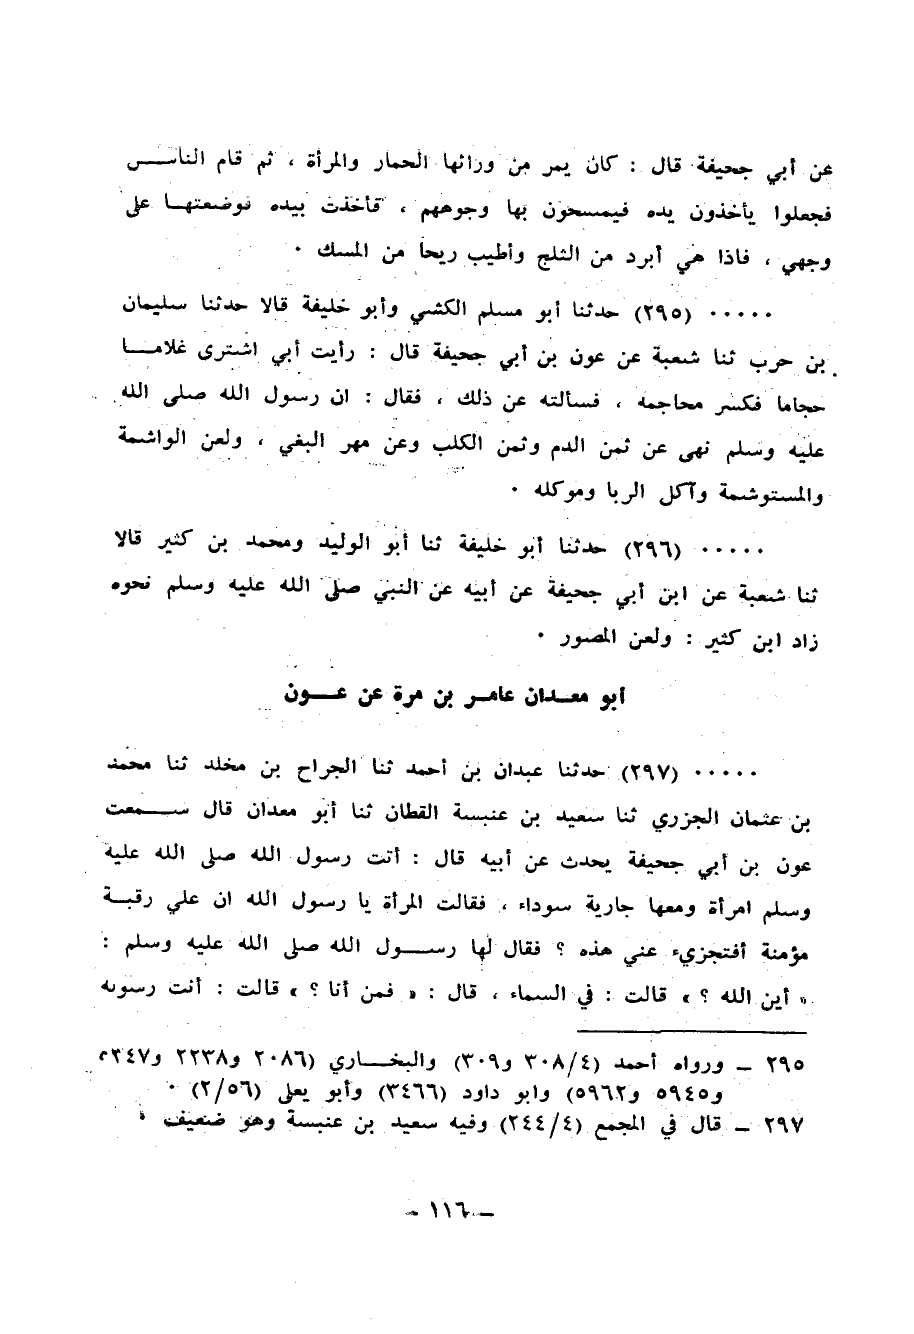 عن أبي جحيفة قال : كان يمر من ورائها الحمار والمرأة ، ثم قام الناس
فجعلوا يأخذون يده فيمسحون بها وجوههم ، قأخذت بيده فوضعتها على
وجهي ، فاذا هي أبرد من الثلج وأطيب ريحا من المسك ٠
٠٠٠٠٠ (٢٩٥) حدثنا أبو مسلم الكشي وأبو خليفة قالا حدثنا سليمان
بن حرب ثنا شعبة عن عون بن أبي جحيفة قال : رأيت أبي اشترى غلاما
حجاما فكسر محاجمه ، فسألته عن ذلك ، فقال : ان رسول الله صلى الله
عليه وسلم نهى عن ثمن الدم وثمن الكلب وعن مهر البغي ، ولعن الواشمة
والمستوشمة وآكل الربا وموكله ٠
٠٠٠٠٠ (٢٩٦) حدثنا أبو خليفة ثنا أبو الوليد ومحمد بن كثير قالا
ثنا شعبة عن ابن أبي جحيفة عن أبيه عن النبي صلى الله عليه وسلم نحوه
زاد ابن كثير : ولعن المصور ٠
أبو معدان عامر بن مرة عن عون
٠٠٠٠٠ (٢٩٧) حدثنا عبدان بن أحمد ثنا الجراح بن مخلد ثنا محمد
بن عثمان الجزري ثنا سعيد بن عنبسة القطان ثنا أبو معدان قال سمعت
عون بن أبي جحيفة يحدث عن أبيه قال : أتت رسول الله صلى الله عليه
وسلم امرأة ومعها جارية سوداء ، فقالت المرأة يا رسول الله ان علي رقبة
مؤمنة أفتجزيء عني هذه ؟ فقال لها رسول الله صلى الله عليه وسلم :
« أين الله ؟ » قالت : في السماء ، قال : « فمن أنا ؟ » قالت : أنت رسوله
٢٩٥ ـ ورواه أحمد (٣٠٨/٤ و٣٠٩) والبخاري (٢٠٨٦ و٢٢٣٨ و٥٣٤٧
و٥٩٤٥ و٥٩٦٢) وابو داود (٣٤٦٦) وأبو يعلى (٢/٥٦) ٠
٢٩٧ ـ قال في المجمع (٢٤٤/٤) وفيه سعيد بن عنبسة وهو ضعيف ٠
ـ ١١٦ ـ